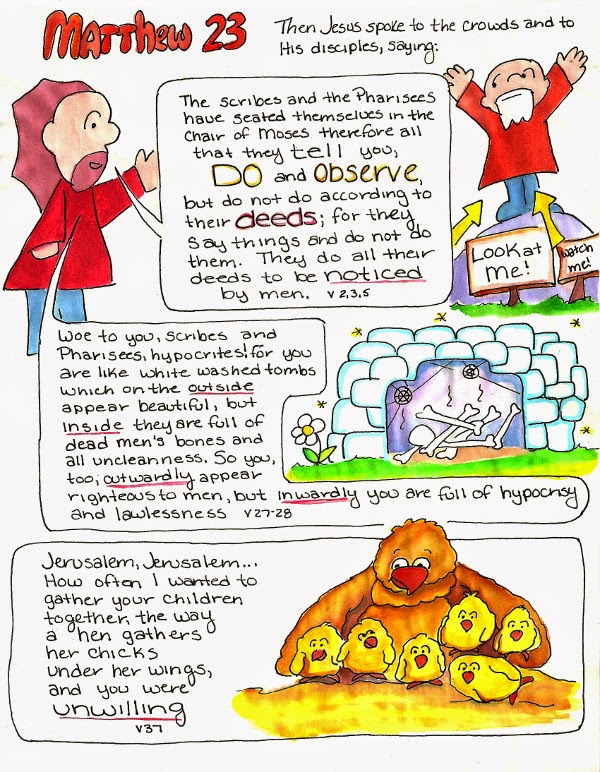 Matthew 23
Then Jesus spoke to the crowds and to
His disciples, saying:
The scribes and the Pharisees
have seated themselves in the
chair of Moses therefore all
that they tell you,
DO and observe,
but do not do according to
their deeds; for they
say things and do not do
them. They do all their
deeds to be noticed
by men. v 2,3,5
Look at
me!
watch
me!
Woe to you, scribes and
Pharisees, hypocrites! for you
are like white washed tombs
which on the outside
appear beautiful, but
inside they are full of
dead men's bones and
all uncleanness. So you,
too, outwardly appear
righteous to men, but inwardly you are full of hypocrisy
and lawlessness v27-28
Jerusalem, Jerusalem...
How often I wanted to
gather your children
together, the way
a hen gathers
her chicks
under her wings,
and you were
unwilling
v37